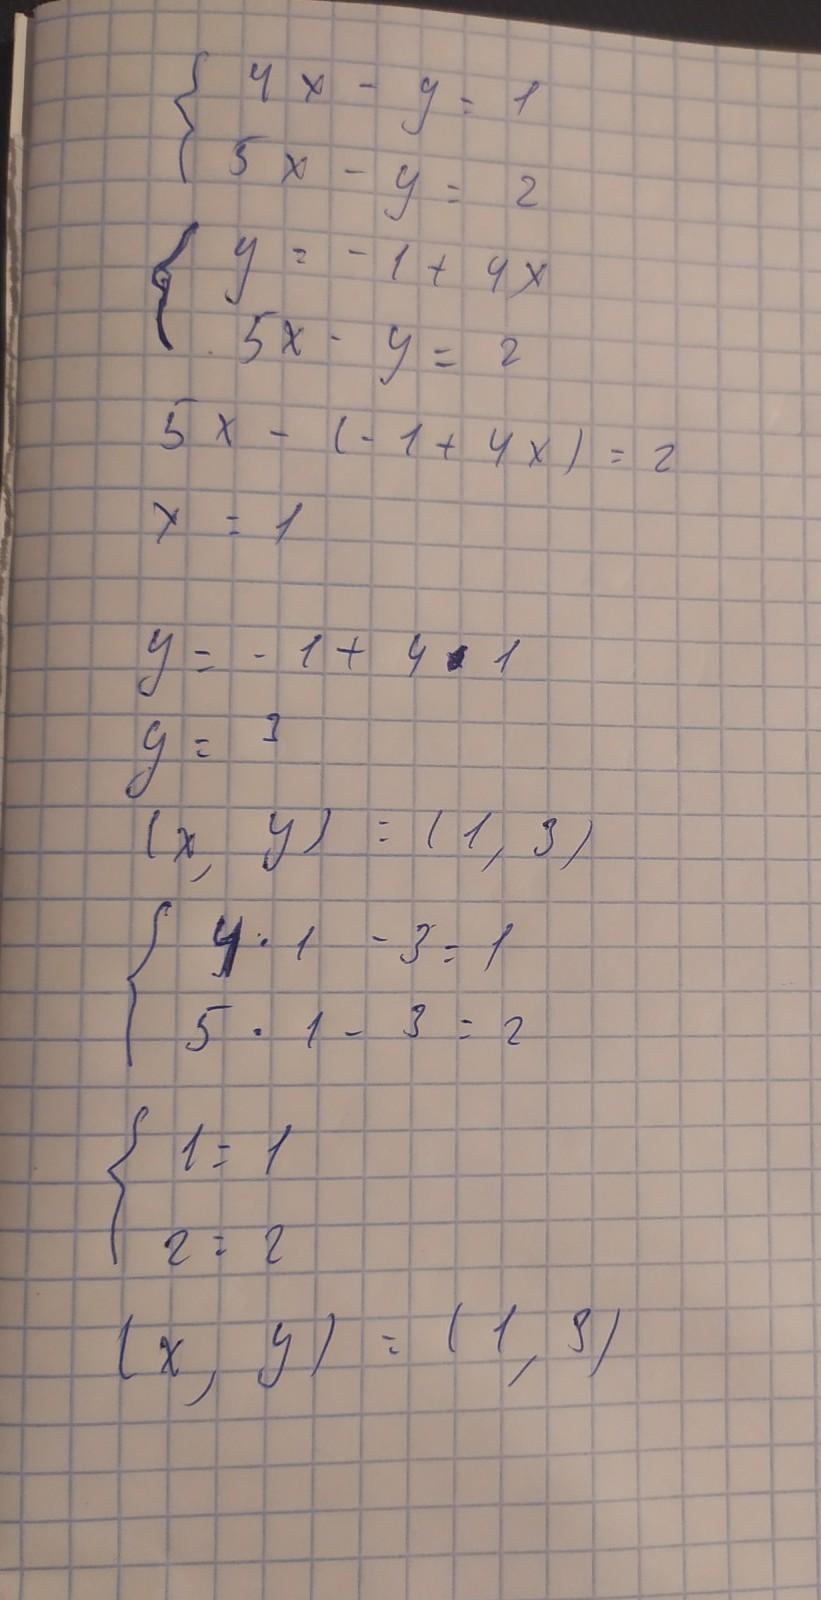 { 4x - y = 1
5x - y = 2
{ y = -1 + 4x
5x - y = 2
5x - (-1 + 4x) = 2
x = 1
y = -1 + 4 · 1
y = 3
(x, y) = (1, 3)
{ 4 · 1 - 3 = 1
5 · 1 - 3 = 2
{ 1 = 1
2 = 2
(x, y) = (1, 3)